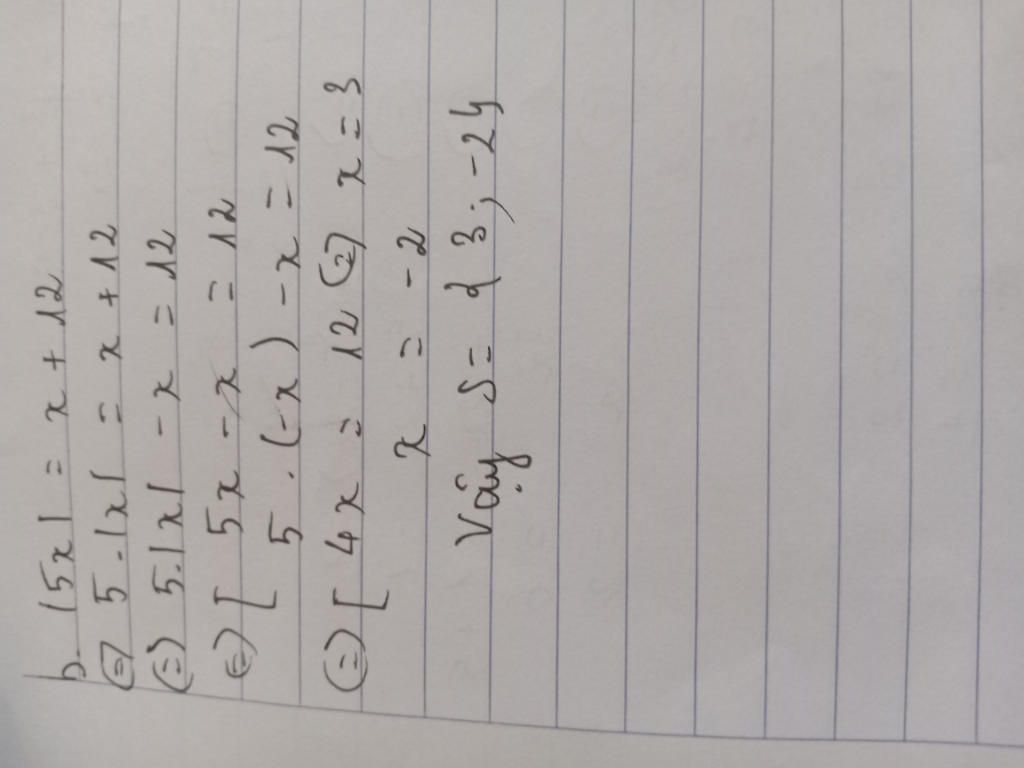 b. |5x| = x + 12
(=) 5.|x| = x + 12
(=) 5.|x| - x = 12
(=) [ 5x - x = 12
5 . (-x) - x = 12
(=) [ 4x = 12 (=) x = 3
x = -2
Vậy S = { 3; -2}